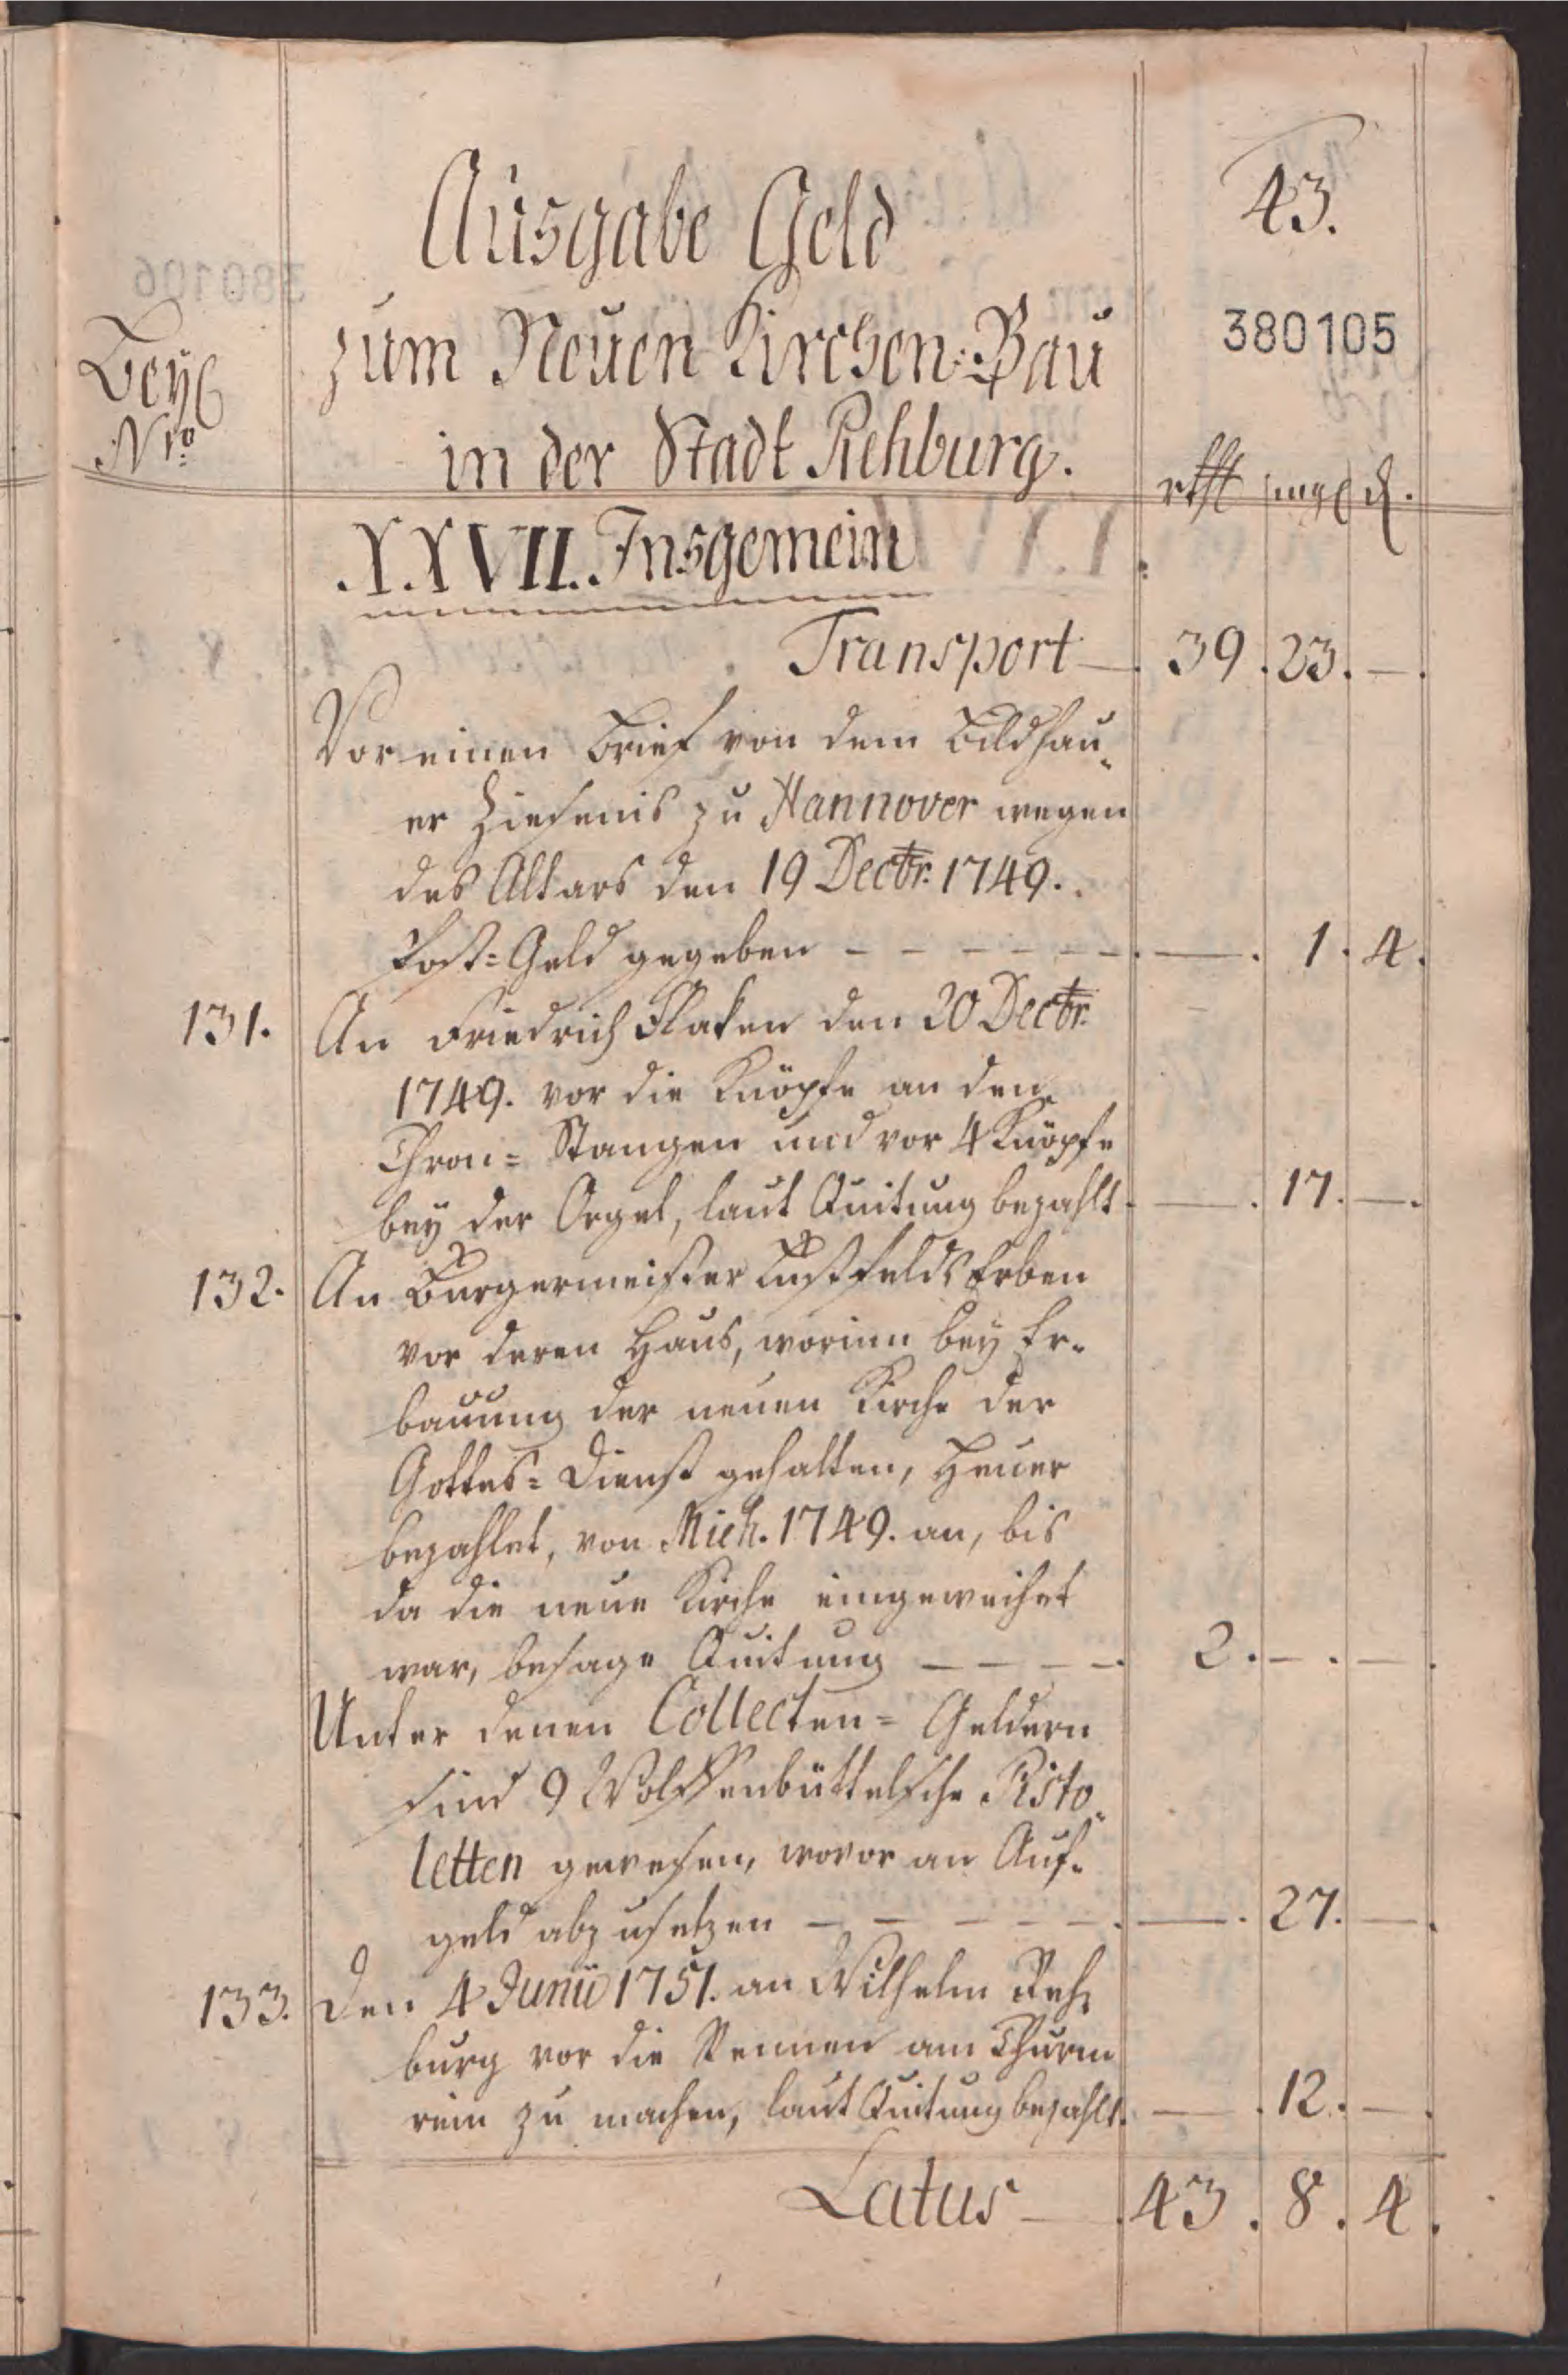 43.
Ausgabe Geld
380105
zum Neuen Kirchen-Bau
Beyl
Nro
in der Stadt Rehburg.
rthl mgl d.
XXVII. Insgemein
Transport — 39. 23. —.
Vor einen Brief von dem Bildhau-
er Ziesenis zu Hannover wegen
des Altars den 19 Dectr. 1749.
Post-Geld gegeben - - - - - - —. 1. 4.
131. An Friedrich Flaken den 20 Dectr.
1749. vor die Knöpfe an den
Thron-Stangen und vor 4 Knöpfe
bey der Orgel, laut Quitung bezahlt. —. 17. —.
132. An Bürgermeister Lustfelds Erben
vor deren Haus, worinn bey Er-
bauung der neuen Kirche der
Gottes-Dienst gehalten, Heuer
bezahlet, von Mich. 1749. an, bis
da die neue Kirche eingeweihet
war, besage Quitung - - - - 2. —. —.
Unter denen Collecten-Geldern
sind 9 Wolffenbüttelsche Pisto-
letten gewesen, wovor an Auf-
geld abzusetzen - - - - - —. 27. —.
133. Den 4 Junii 1751. an Wilhelm Reh-
burg vor die Rennen am Thurm
rein zu machen, laut Quitung bezahlt. —. 12. —.
Latus — 43. 8. 4.